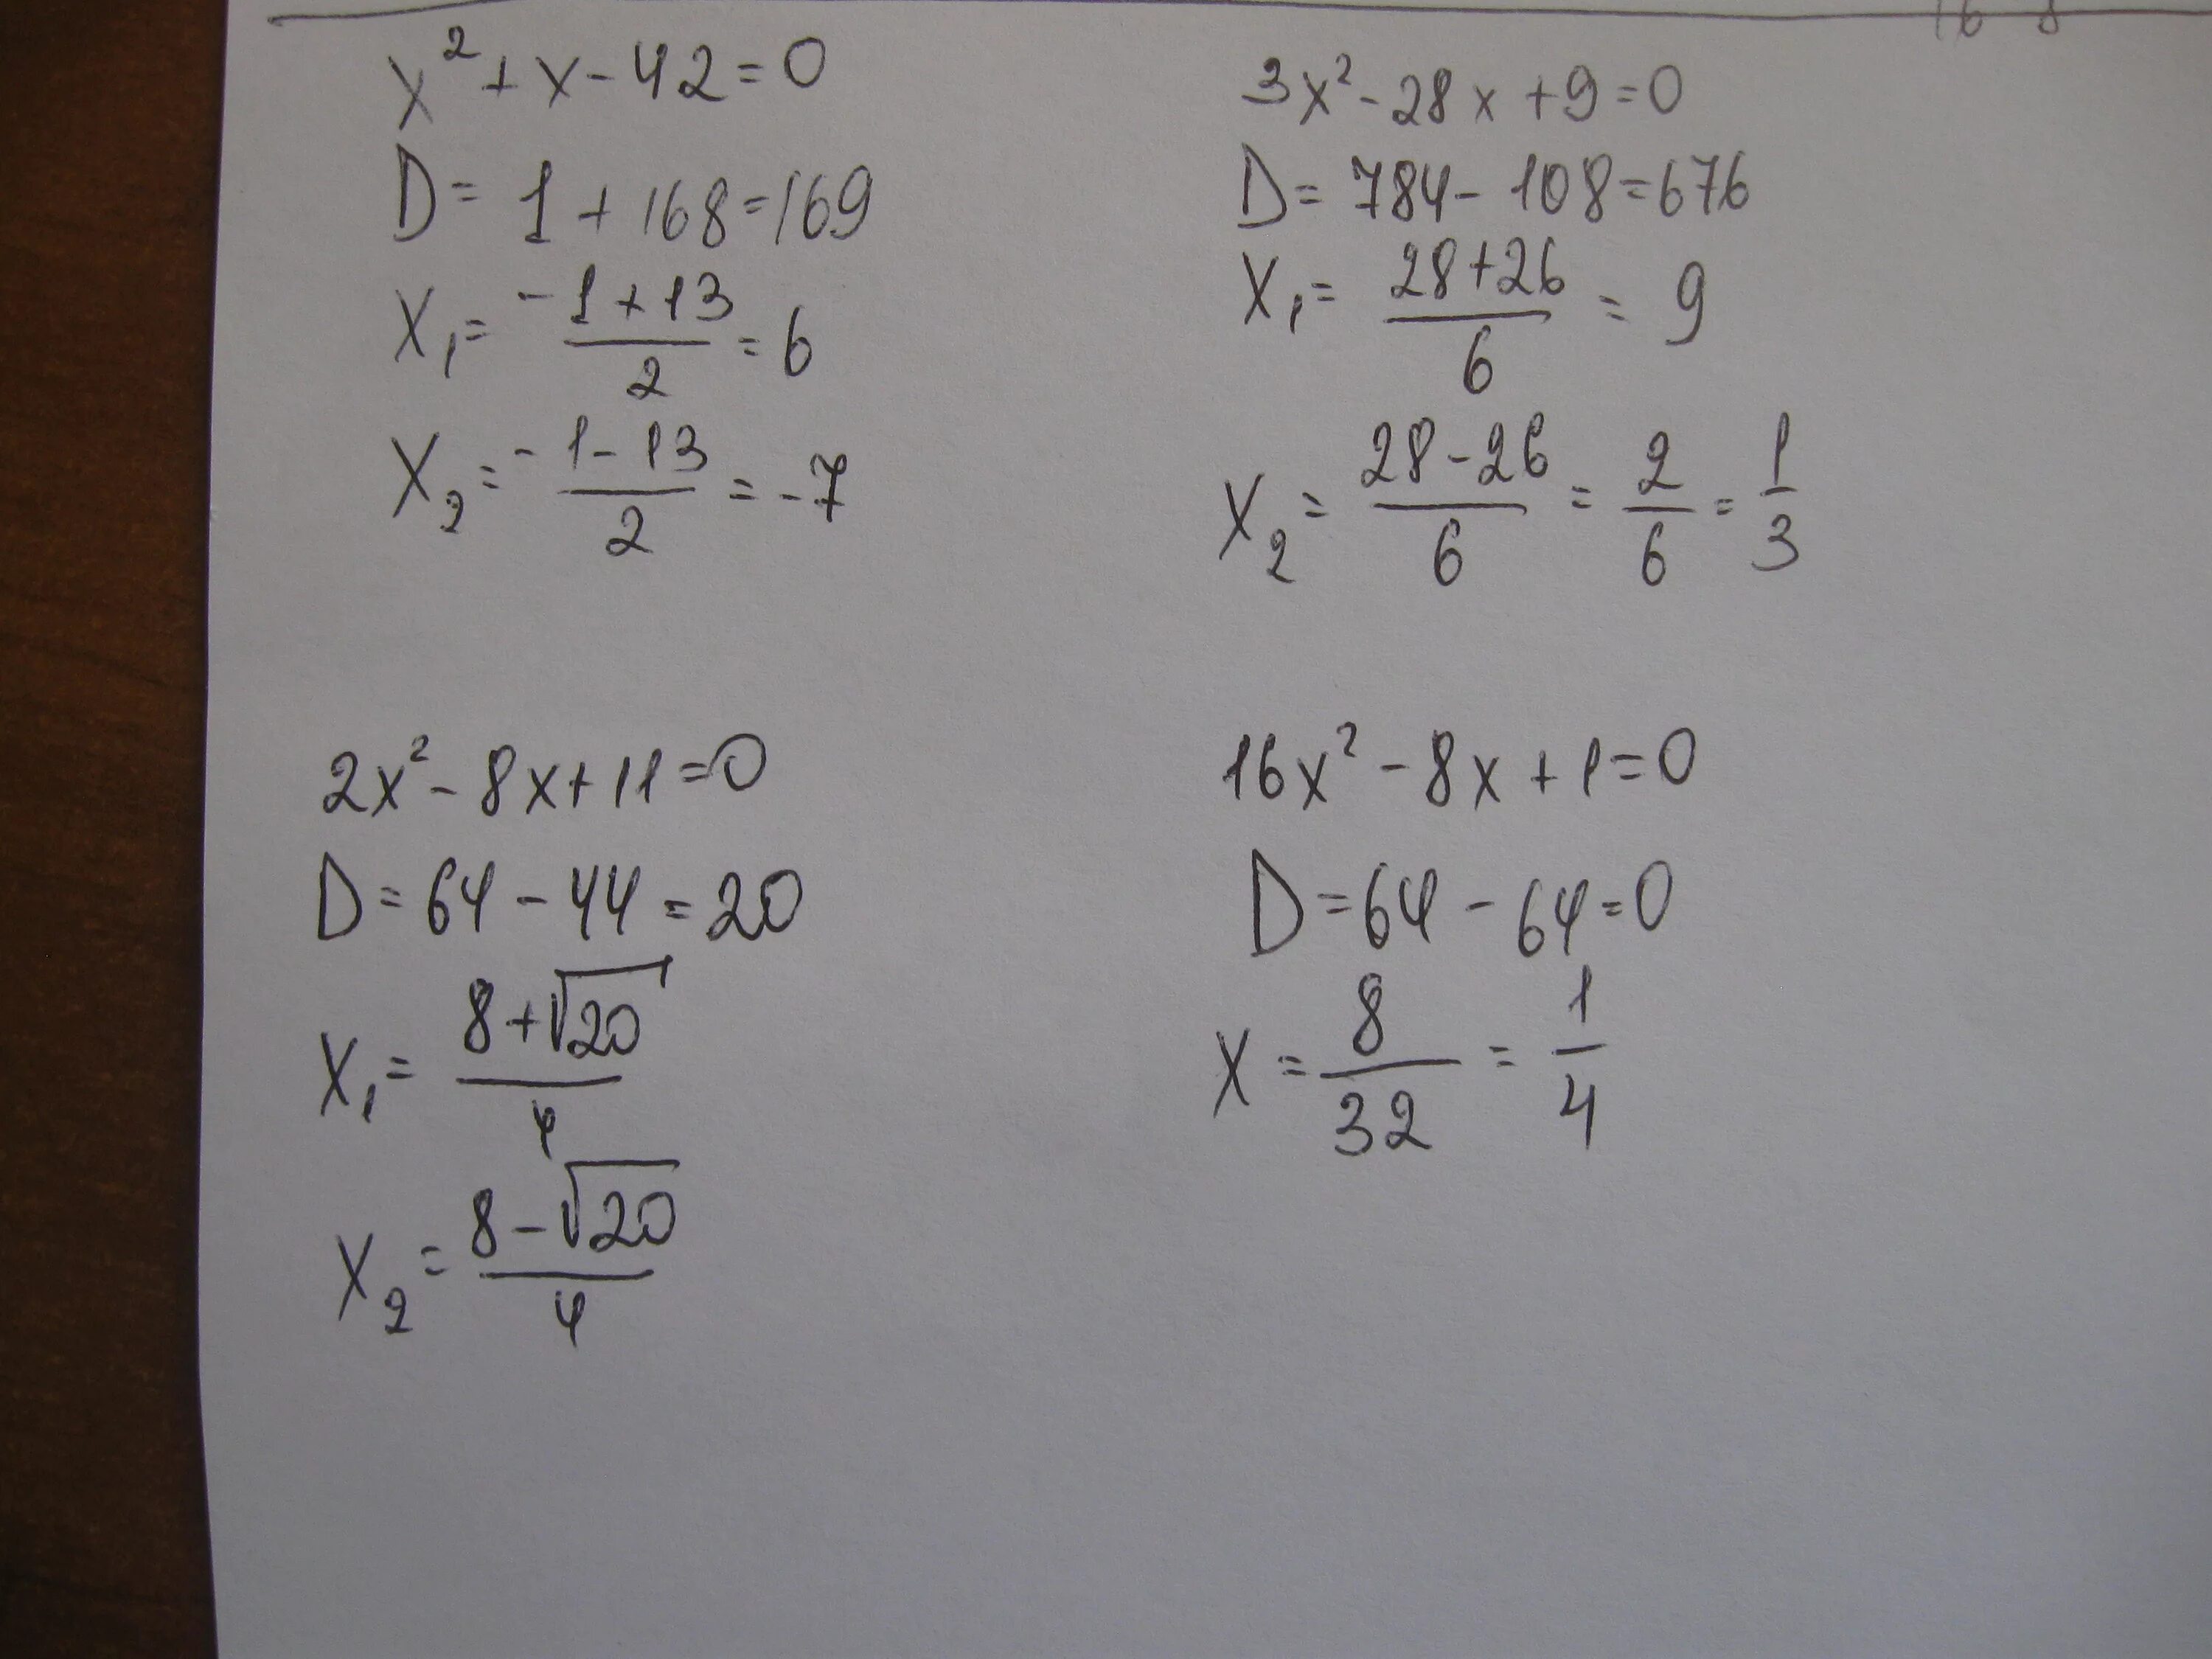 x² + x - 42 = 0
D = 1 + 168 = 169
x₁ = (-1 + 13)/2 = 6
x₂ = (-1 - 13)/2 = -7
3x² - 28x + 9 = 0
D = 784 - 108 = 676
x₁ = (28 + 26)/6 = 9
x₂ = (28 - 26)/6 = 2/6 = 1/3
2x² - 8x + 11 = 0
D = 64 - 44 = 20
x₁ = (8 + √20)/4
x₂ = (8 - √20)/4
16x² - 8x + 1 = 0
D = 64 - 64 = 0
x = 8/32 = 1/4